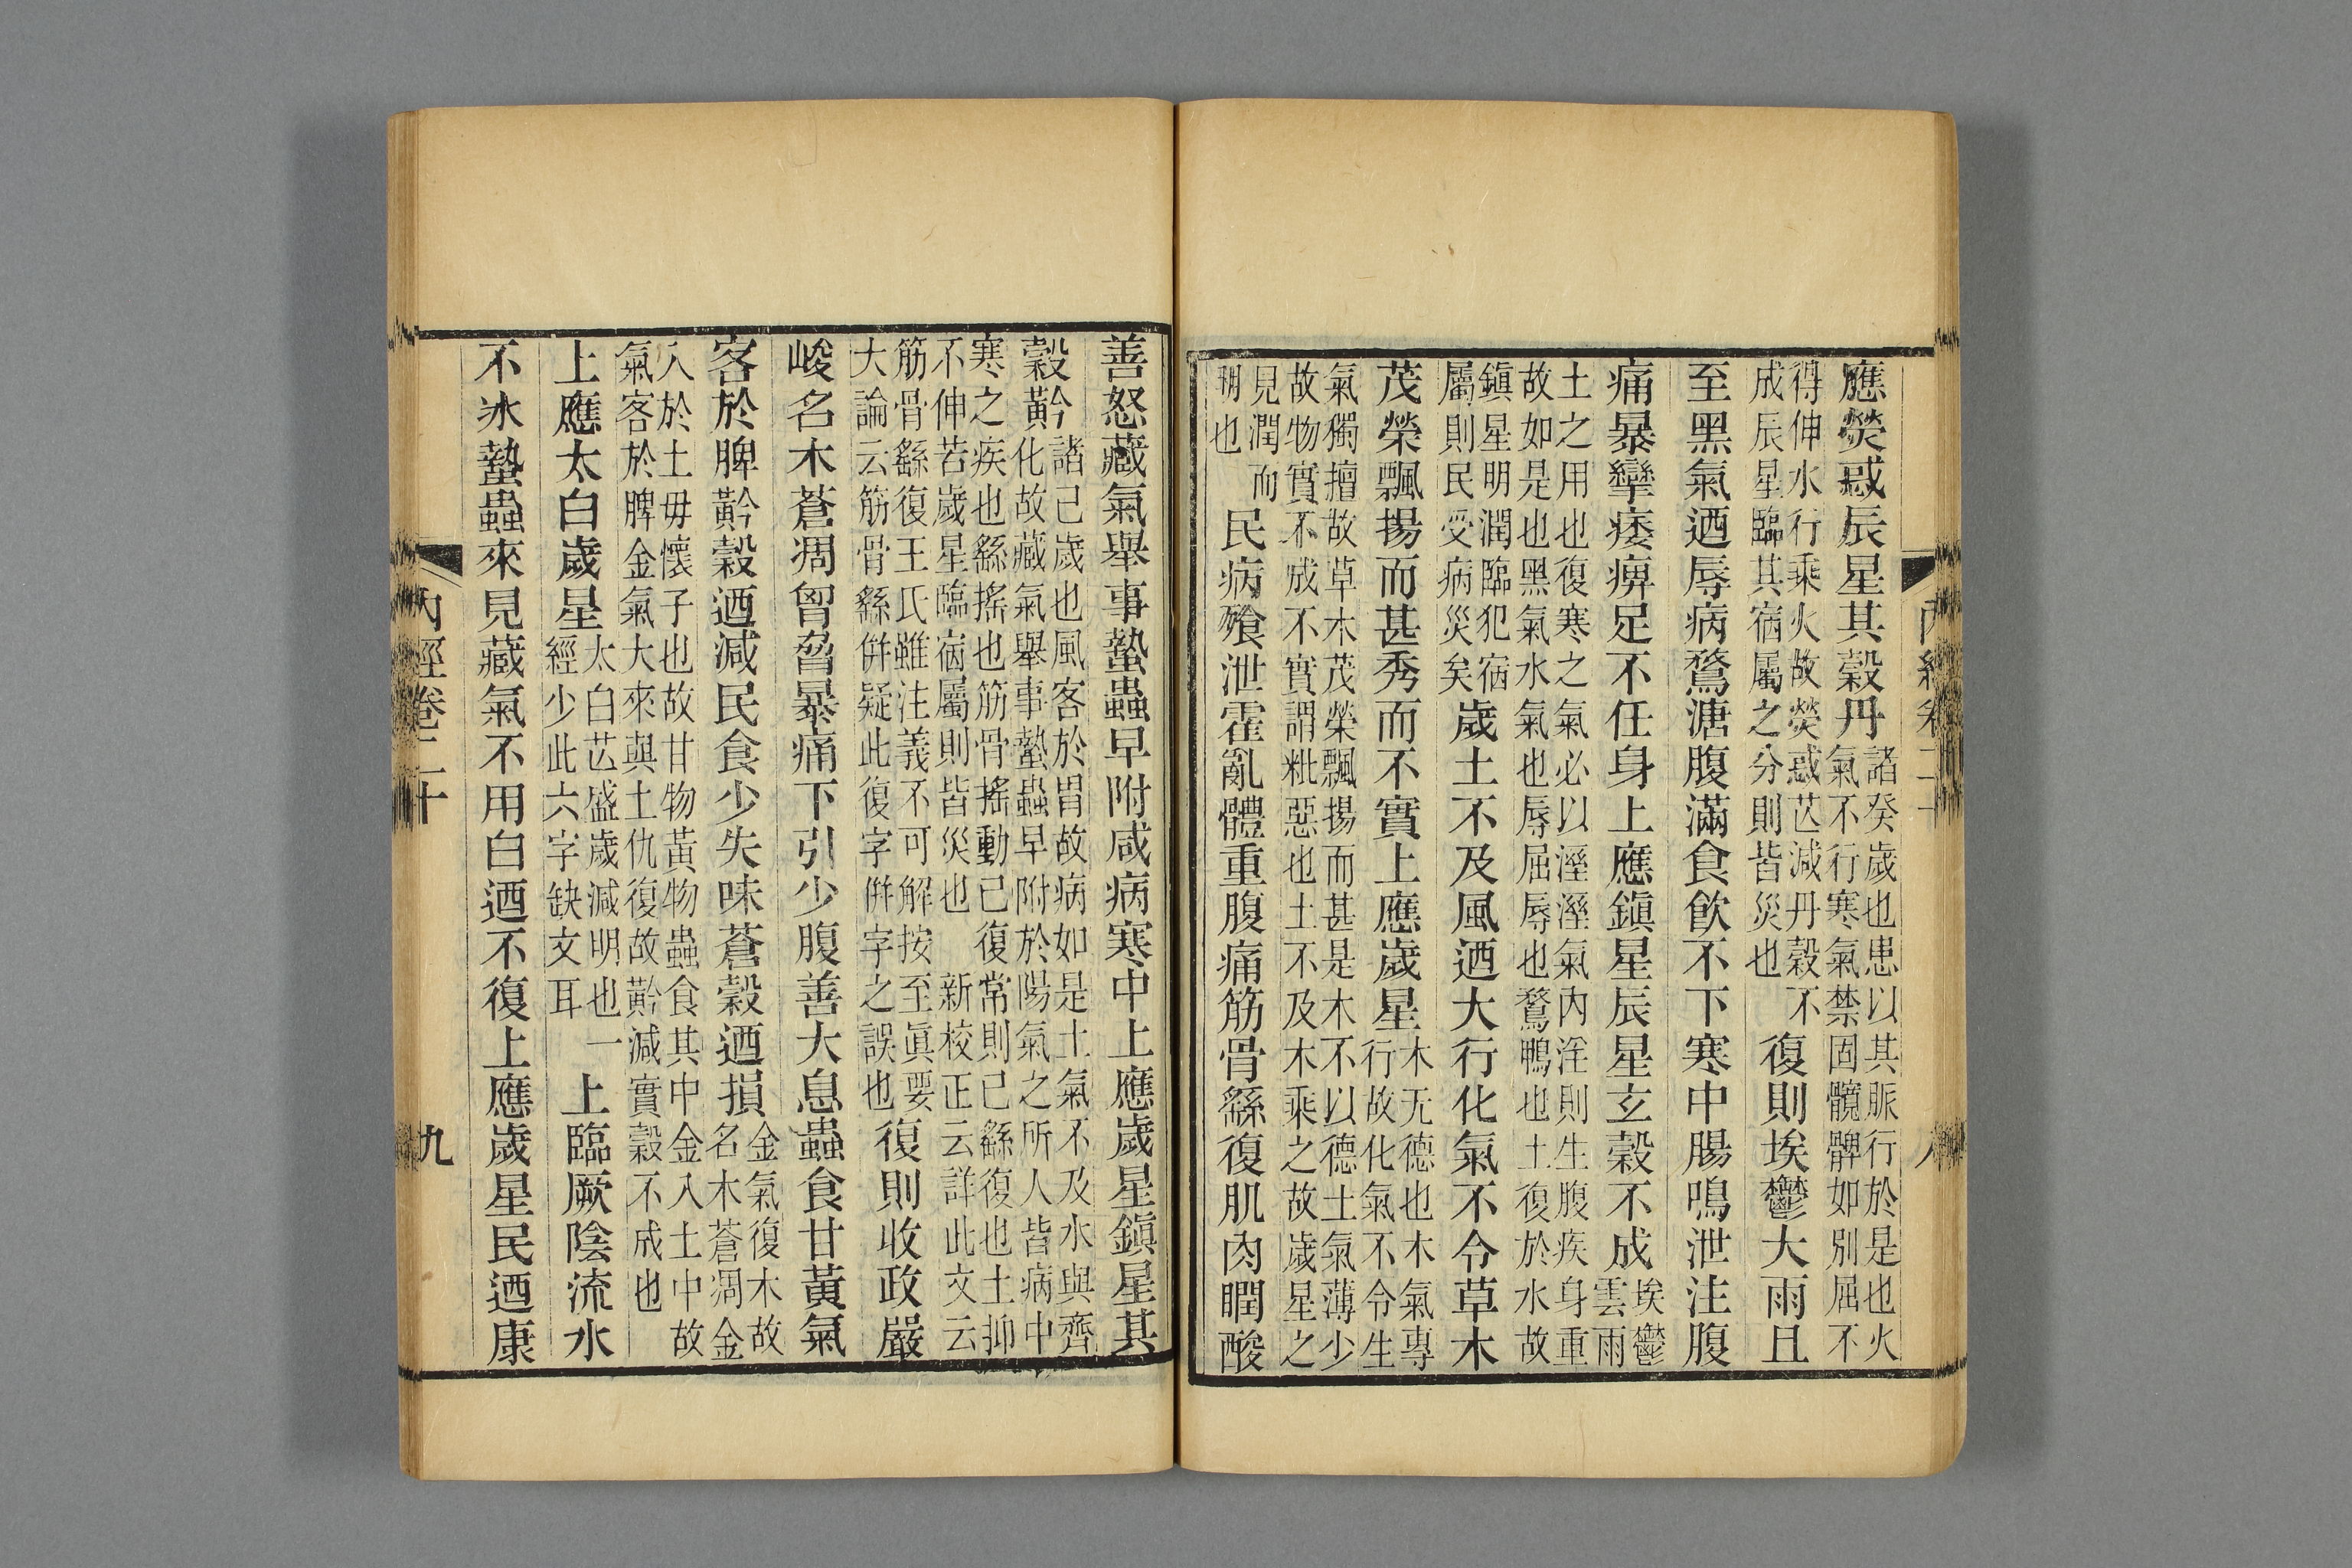 應熒惑辰星其穀丹諸癸歲也患以其脈行於是也火氣不行寒氣禁固髖髀如別屈不
得伸水行乘火故熒惑芒減丹穀不成辰星臨其宿屬之分則皆災也復則埃鬱大雨且
至黑氣迺辱病鶩溏腹滿食飲不下寒中腸鳴泄注腹
痛暴攣痿痹足不任身上應鎮星辰星玄穀不成埃鬱雲雨
土之用也復寒之氣必以溼溼氣內淫則生腹疾身重故如是也黑氣水氣也辱屈辱也鶩鴨也土復於水故
鎮星明潤臨犯宿屬則民受病災矣歲土不及風迺大行化氣不令草木
茂榮飄揚而甚秀而不實上應歲星木无德也木氣專行故化氣不令生
氣獨擅故草木茂榮飄揚而甚是木不以德土氣薄少故物實不成不實謂粃惡也土不及木乘之故歲星之
見潤而明也民病飱泄霍亂體重腹痛筋骨繇復肌肉瞤酸
善怒藏氣舉事蟄蟲早附咸病寒中上應歲星鎮星其
穀黅諸己歲也風客於胃故病如是土氣不及水與齊化故藏氣舉事蟄蟲早附於陽氣之所人皆病中
寒之疾也繇搖也筋骨搖動已復常則已繇復也土抑不伸若歲星臨宿屬則皆災也新校正云詳此文云
筋骨繇復王氏雖注義不可解按至眞要大論云筋骨繇併疑此復字併字之誤也復則收政嚴
峻名木蒼凋胷脅暴痛下引少腹善大息蟲食甘黃氣
客於脾黅穀迺減民食少失味蒼穀迺損金氣復木故名木蒼凋金
入於土毋懷子也故甘物黃物蟲食其中金入土中故氣客於脾金氣大來與土仇復故黅減實穀不成也
上應太白歲星太白芒盛歲減明也一經少此六字缺文耳上臨厥陰流水
不冰蟄蟲來見藏氣不用白迺不復上應歲星民迺康
內經卷二十
九